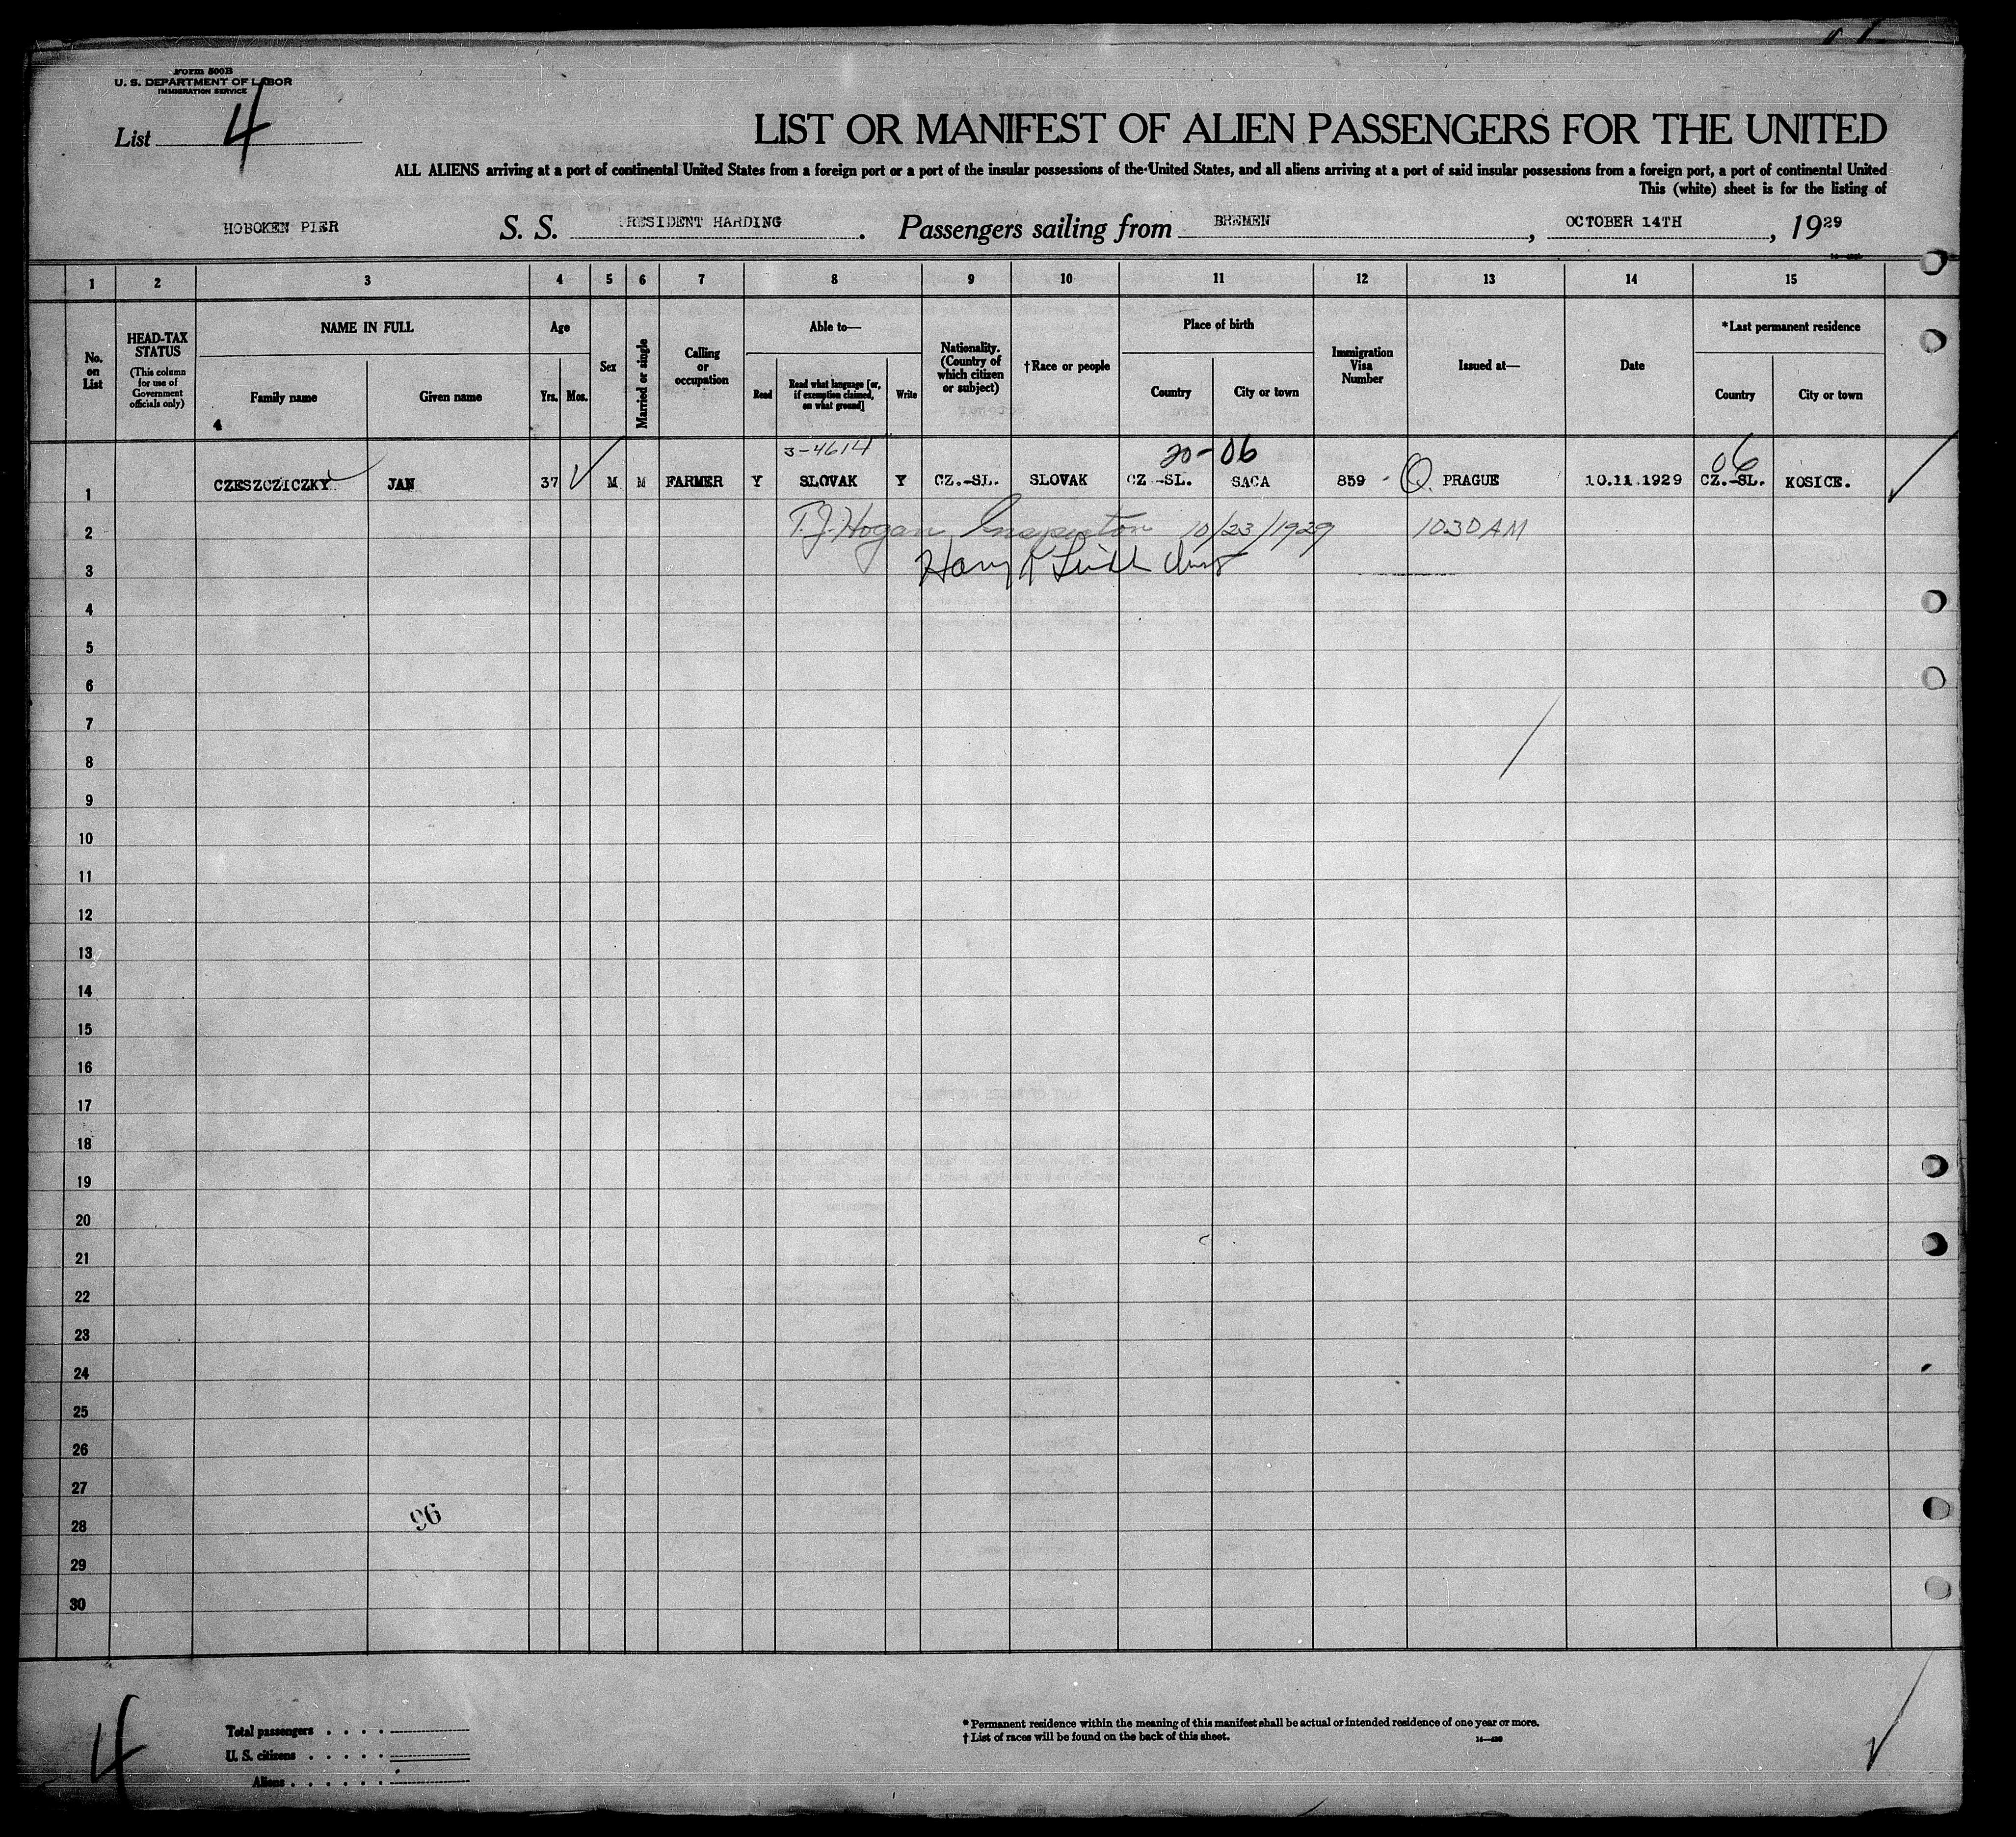 Form 500B
U. S. DEPARTMENT OF LABOR
IMMIGRATION SERVICE
List 4
LIST OR MANIFEST OF ALIEN PASSENGERS FOR THE UNITED
ALL ALIENS arriving at a port of continental United States from a foreign port or a port of the insular possessions of the United States, and all aliens arriving at a port of said insular possessions from a foreign port, a port of continental United
This (white) sheet is for the listing of
HOBOKEN PIER S. S. PRESIDENT HARDING . Passengers sailing from BREMEN , OCTOBER 14TH , 1929
1 2 3 4 5 6 7 8 9 10 11 12 13 14 15
No. on List
HEAD-TAX STATUS
(This column for use of Government officials only)
NAME IN FULL
Family name Given name
4
Age
Yrs. Mos.
Sex
Married or single
Calling or occupation
Able to—
Read Read what language [or, if exemption claimed, on what ground] Write
Nationality. (Country of which citizen or subject)
†Race or people
Place of birth
Country City or town
Immigration Visa Number
Issued at—
Date
*Last permanent residence
Country City or town
3-4614 20-06 06
1 CZESZCZICZKY JAN 37 M M FARMER Y SLOVAK Y CZ.-SL. SLOVAK CZ -SL. SACA 859 - Q. PRAGUE 10.11.1929 CZ.-SL. KOSICE.
2 T.J. Hogan Inspector 10/23/1929 1030 AM
3 Harry
4
5
6
7
8
9
10
11
12
13
14
15
16
17
18
19
20
21
22
23
24
25
26
27
28 96
29
30
4
Total passengers . . . .
U. S. citizens . . . . .
Aliens . . . . . .
* Permanent residence within the meaning of this manifest shall be actual or intended residence of one year or more.
† List of races will be found on the back of this sheet.